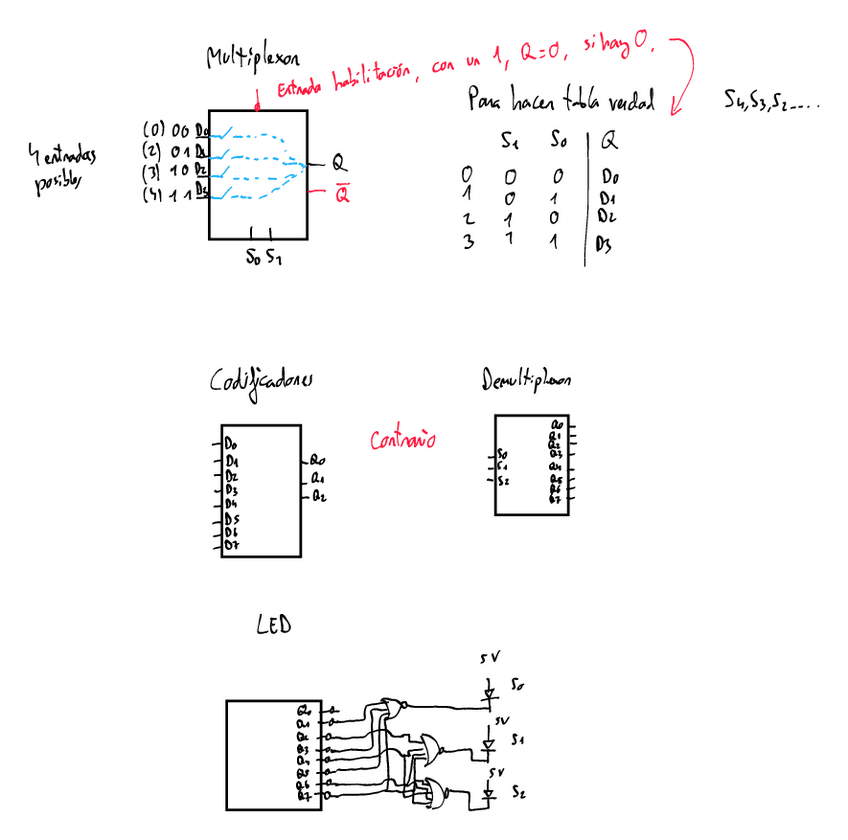 Multiplexor
Entrada habilitación, con un 1, Q=0, si hay 0,
Para hacer tabla verdad
S4,S3,S2.....
4 entradas
posibles
(0) 00 D0
(2) 01 D1
(3) 10 D2
(4) 11 D3
Q
Q̅
S0 S1
S1 S0 Q
0 0 0 D0
1 0 1 D1
2 1 0 D2
3 1 1 D3
Codificadores
D0
D1
D2
D3
D4
D5
D6
D7
Q0
Q1
Q2
Contrario
Demultiplexor
S0
S1
S2
Q0
Q1
Q2
Q3
Q4
Q5
Q6
Q7
LED
Q0
Q1
Q2
Q3
Q4
Q5
Q6
Q7
5V
S0
5V
S1
5V
S2